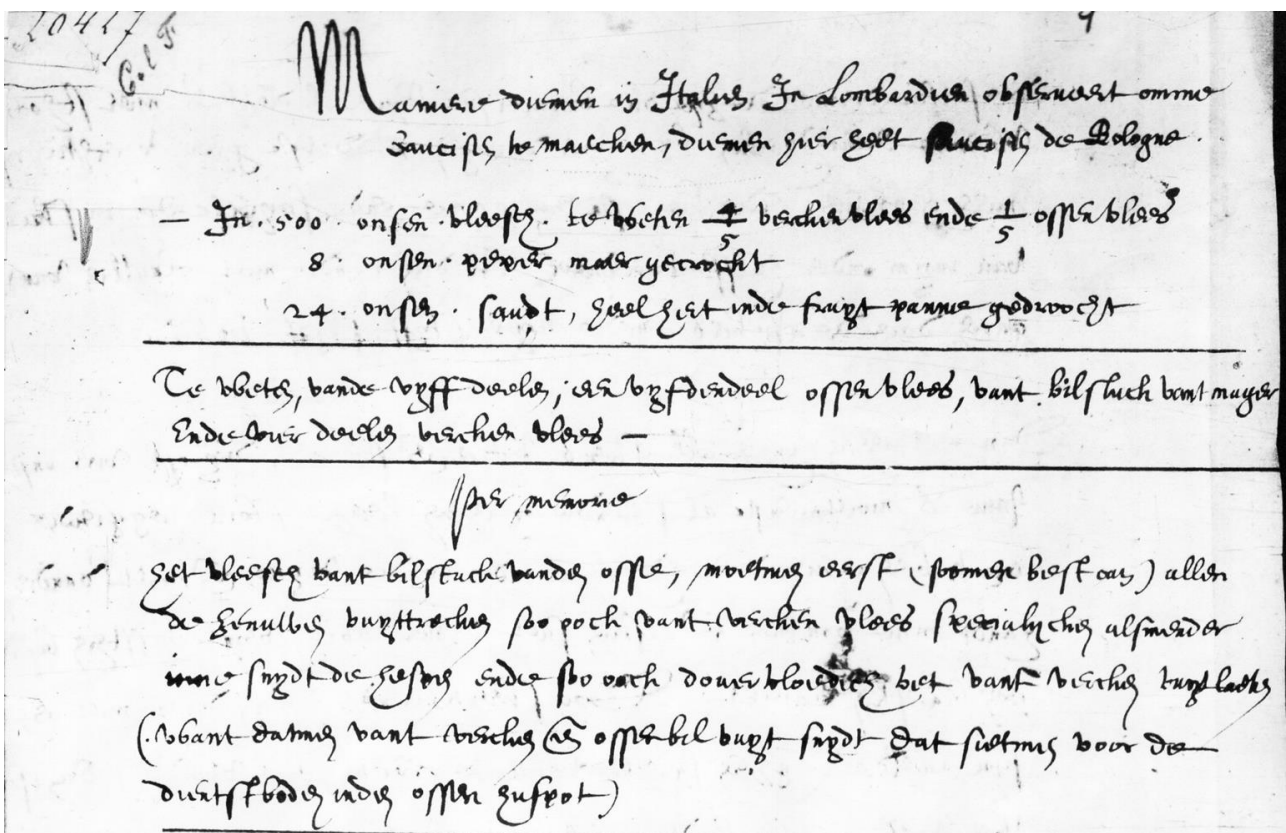 20427
C. l F
9
Maniere diemen in Italien In Lombardien observeert omme
Saucisen te maecken, diemen hier heet saucisen de Bologne.
— In. 500. onsen. vleesch. te weten 4/5 verckenvlees ende 1/5 ossen vlees
8. onsen. peper maer gecrockt
24. onsen. saudt, heel heet inde fruyt panne gedroocht
Te weten, vande vyff deelen, een vyfdendeel ossen vlees, vant bilstuck vant mager
Ende vier deelen vercken vlees —
Per memorie
Het vleesch vant bilstuck vanden osse, moetmen eerst (soomen best can) allen
de zenuwen vuyttrecken soo oock vant vercken vlees specialycken alsmender
inne snydt de hespen ende soo oock dovervloedich vet vant vercken laeten
(. want datmen vant vercken en ossenbil vuyt snydt dat sietmen voor de
dientstboden inden ossen huspot)